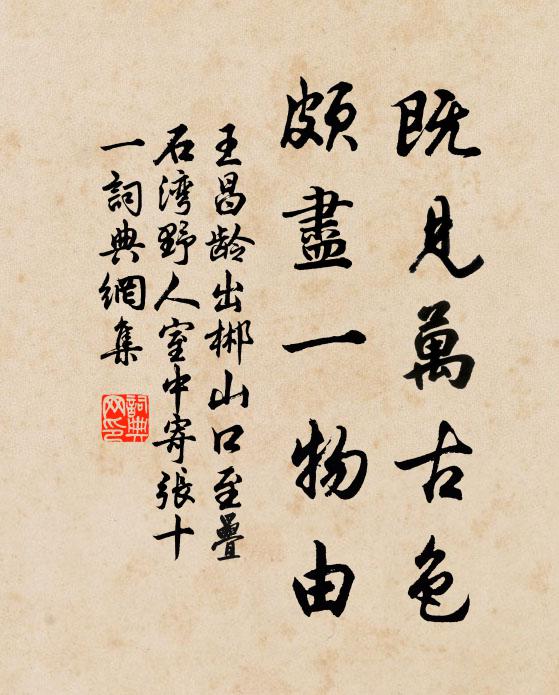 既見萬古色
頗盡一物由
王昌齡出郴山口至疊
石湾野人室中寄張十
一詞典網集
詞典
网印